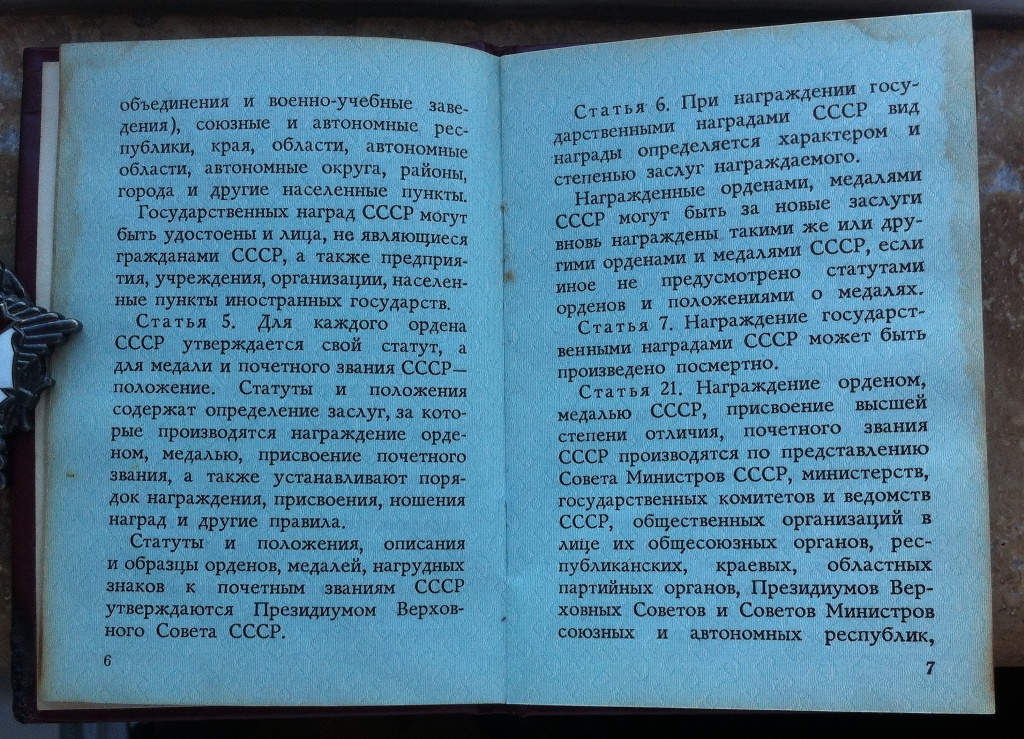 объединения и военно-учебные заве-
дения), союзные и автономные рес-
публики, края, области, автономные
области, автономные округа, районы,
города и другие населенные пункты.
Государственных наград СССР могут
быть удостоены и лица, не являющиеся
гражданами СССР, а также предприя-
тия, учреждения, организации, населен-
ные пункты иностранных государств.
Статья 5. Для каждого ордена
СССР утверждается свой статут, а
для медали и почетного звания СССР—
положение. Статуты и положения
содержат определение заслуг, за кото-
рые производятся награждение орде-
ном, медалью, присвоение почетного
звания, а также устанавливают поря-
док награждения, присвоения, ношения
наград и другие правила.
Статуты и положения, описания
и образцы орденов, медалей, нагрудных
знаков к почетным званиям СССР
утверждаются Президиумом Верхов-
ного Совета СССР.
6
Статья 6. При награждении госу-
дарственными наградами СССР вид
награды определяется характером и
степенью заслуг награждаемого.
Награжденные орденами, медалями
СССР могут быть за новые заслуги
вновь награждены такими же или дру-
гими орденами и медалями СССР, если
иное не предусмотрено статутами
орденов и положениями о медалях.
Статья 7. Награждение государст-
венными наградами СССР может быть
произведено посмертно.
Статья 21. Награждение орденом,
медалью СССР, присвоение высшей
степени отличия, почетного звания
СССР производятся по представлению
Совета Министров СССР, министерств,
государственных комитетов и ведомств
СССР, общественных организаций в
лице их общесоюзных органов, рес-
публиканских, краевых, областных
партийных органов, Президиумов Вер-
ховных Советов и Советов Министров
союзных и автономных республик,
7